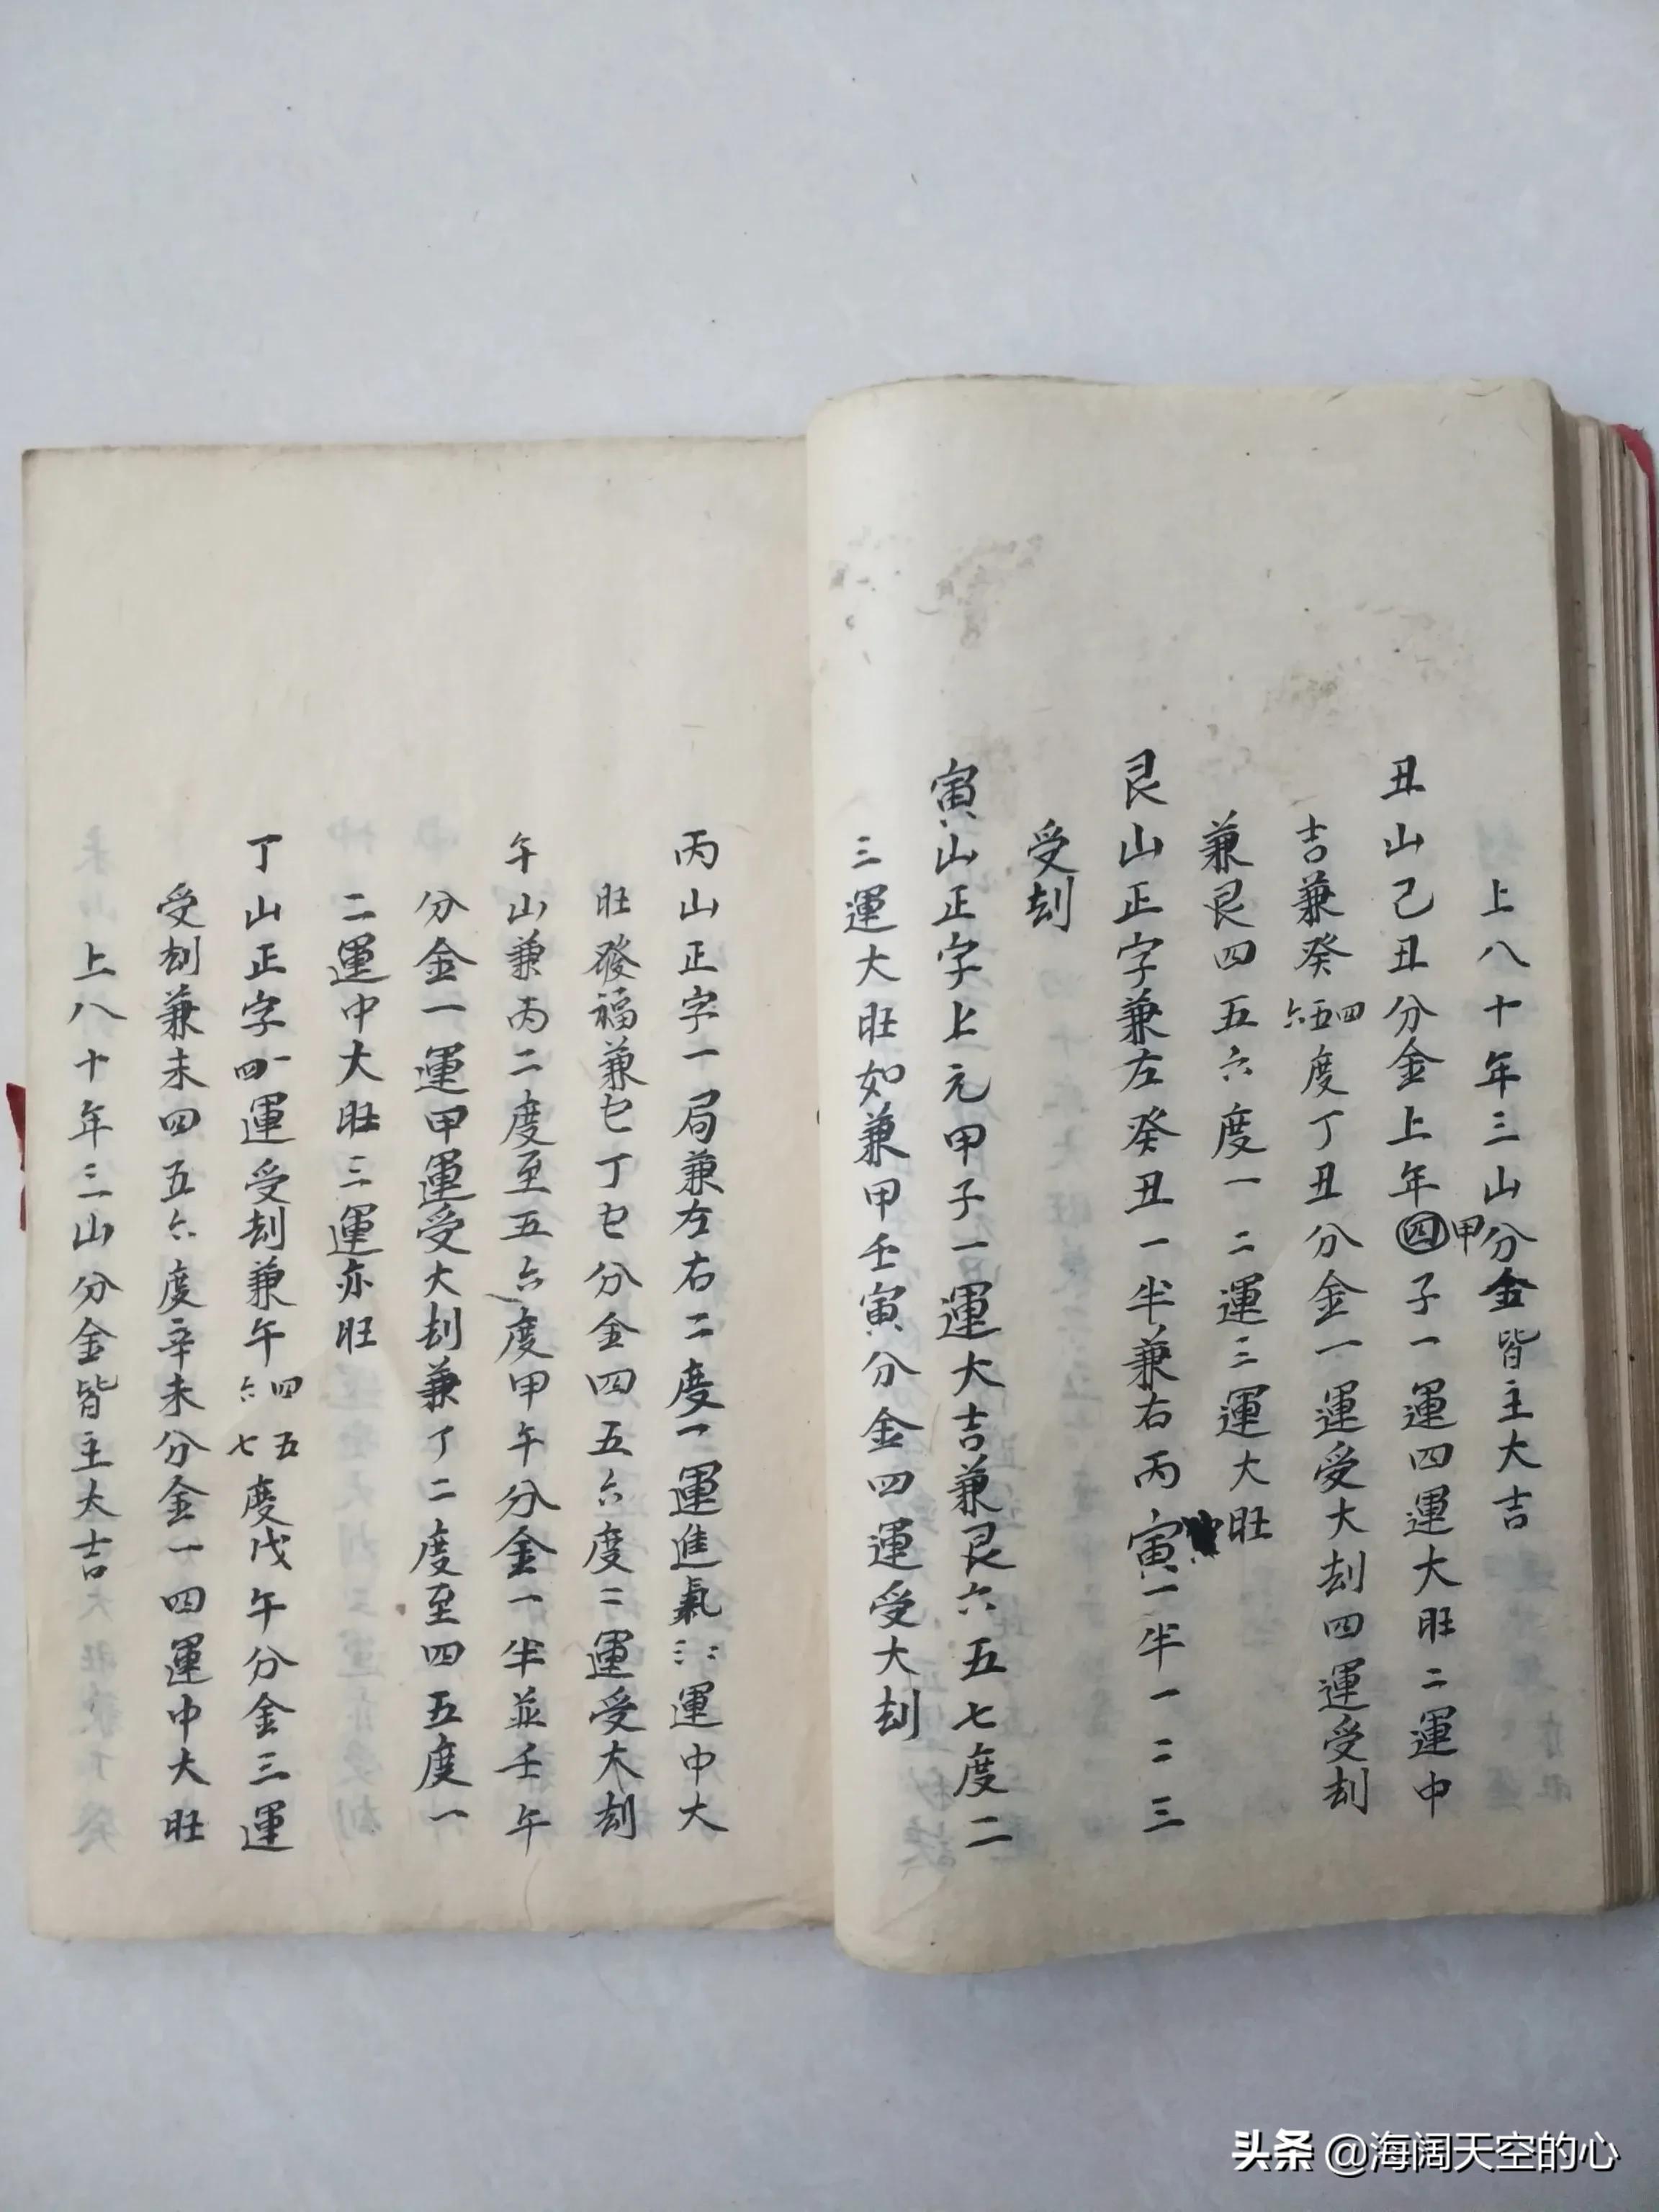 上八十年三山分金皆主大吉
丑山己丑分金上年四甲子一運四運大旺二運中
吉兼癸四五六度丁丑分金一運受大刦四運受刦
兼艮四五六度一二運三運大旺
艮山正字兼左癸丑一半兼右丙寅一半一二三
受刦
寅山正字上元甲子一運大吉兼艮六五七度二
三運大旺如兼甲壬寅分金四運受大刦
丙山正字一局兼左右二度一運進氣三運中大
旺發福兼巳丁巳分金四五六度二運受大刦
午山兼丙二度至五六度甲午分金一半並壬午
分金一運甲運受大刦兼丁二度至四五度一
二運中大旺三運亦旺
丁山正字一四運受刦兼午四六五七度戊午分金三運
受刦兼未四五六度辛未分金一四運中大旺
上八十年三山分金皆主太吉
头条 @海阔天空的心